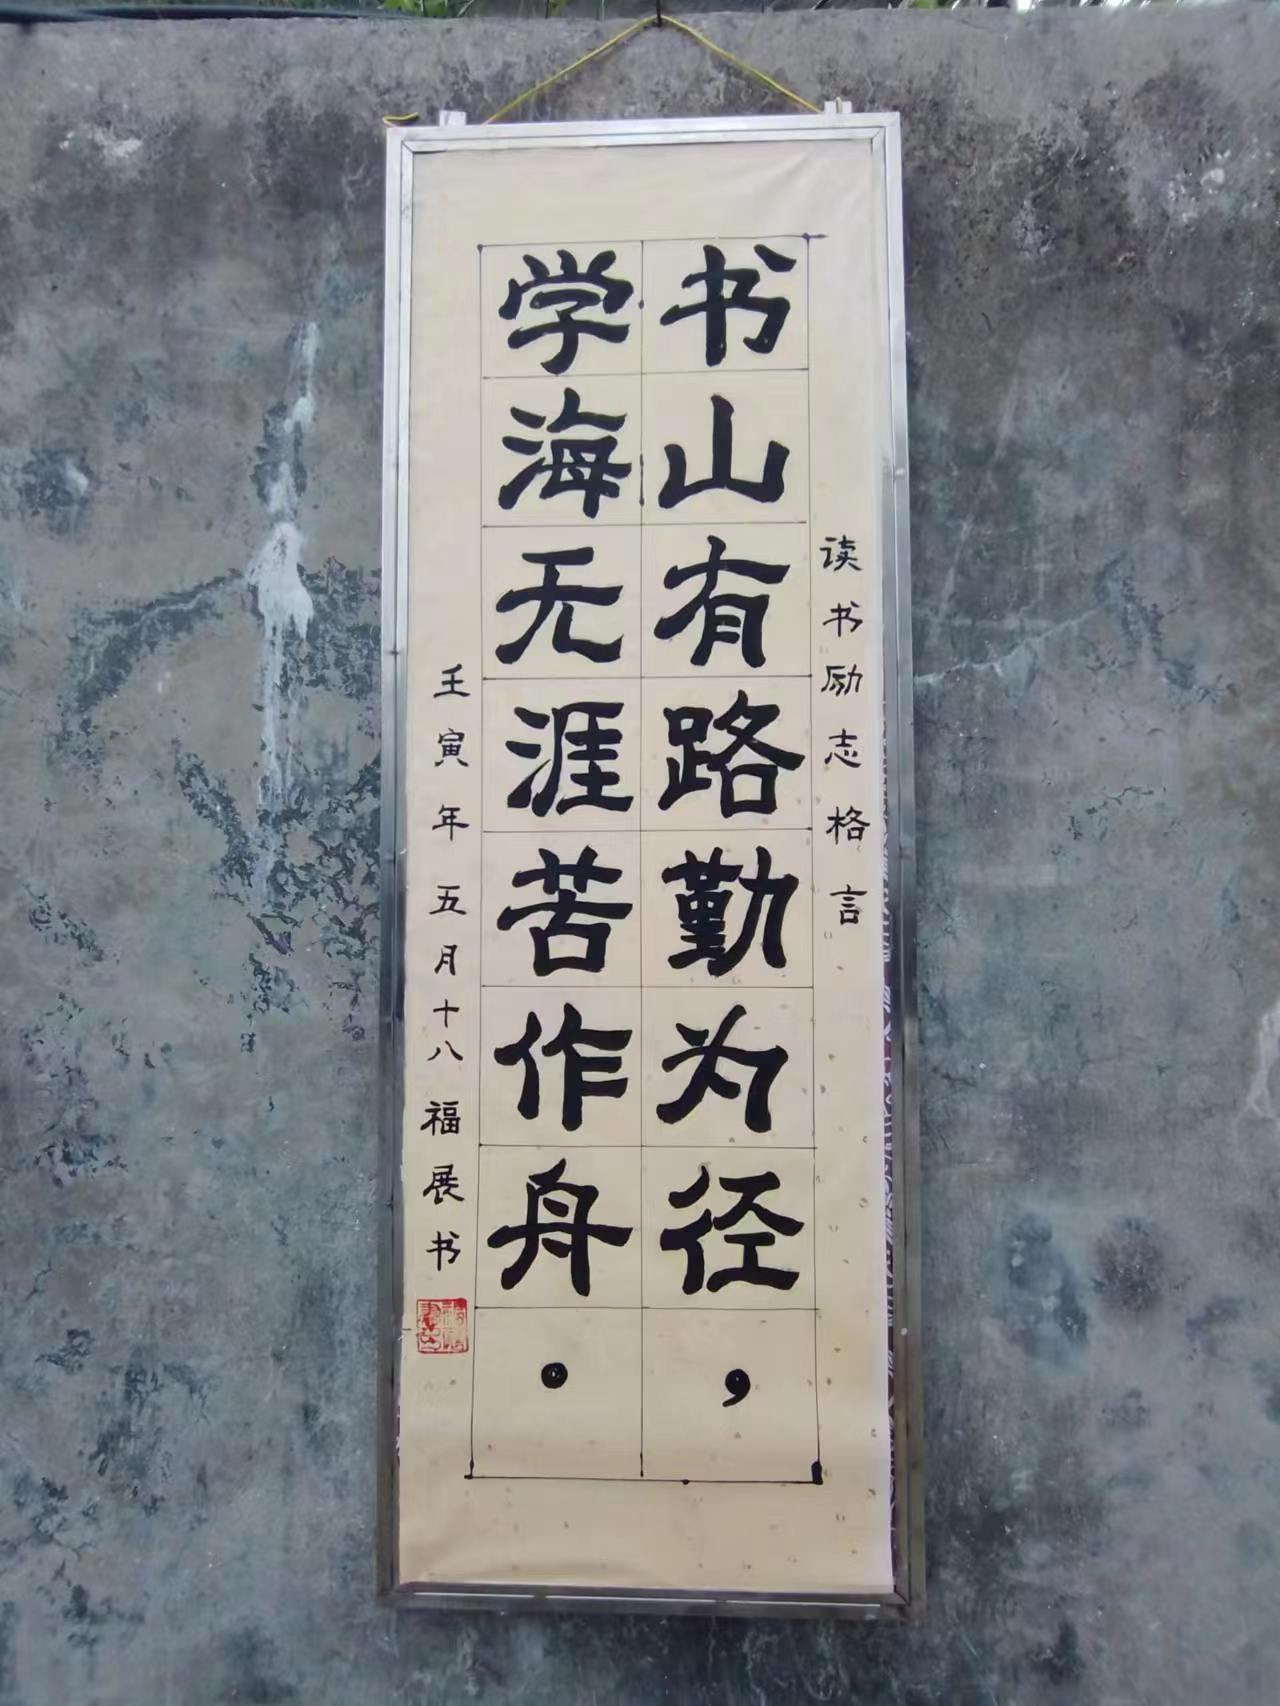 读书励志格言
书山有路勤为径，
学海无涯苦作舟。
壬寅年五月十八福展书